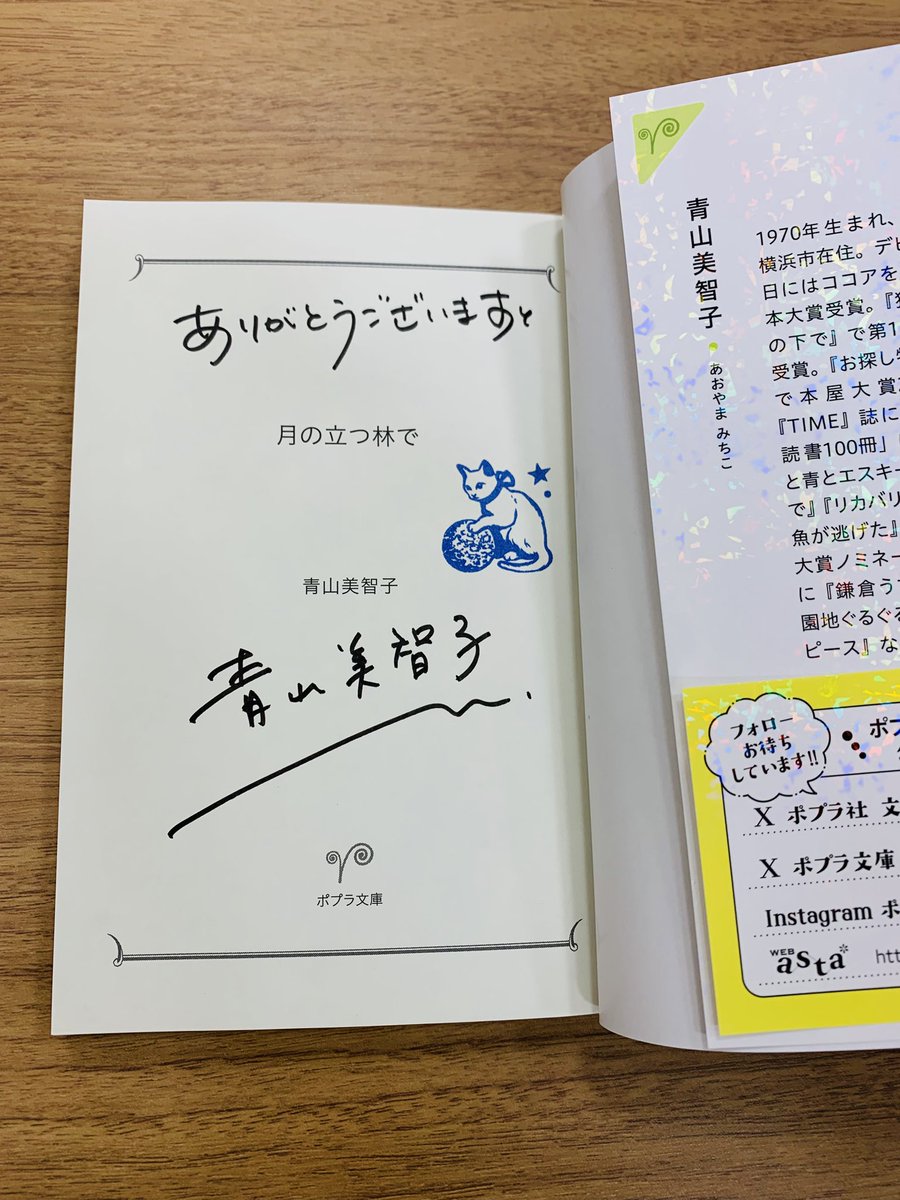 ありがとうございますと
月の立つ林で
青山美智子
青山美智子
ポプラ文庫
青山美智子
あおやまみちこ
1970年生まれ、
横浜市在住。デビ
日にはココアを
本大賞受賞。『
の下で』で第1
受賞。『お探し
で本屋大賞
『TIME』誌に
読書100冊」
と青とエスキー
で』『リカバリ
魚が逃げた』
大賞ノミネー
に『鎌倉う
園地ぐるぐる
ピース』な
フォロー
お待ち
しています!!
ポプ
X ポプラ社 文
X ポプラ文庫
Instagram ポ
WEB asta*
htt